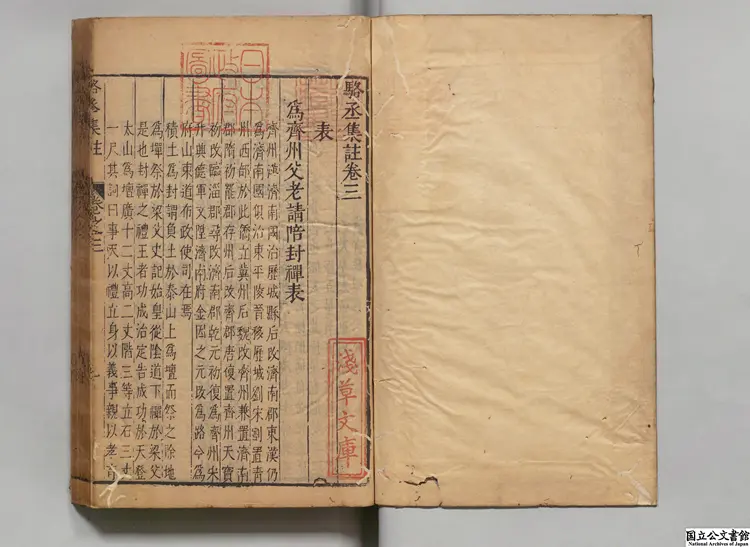 駱丞集註卷三
表
爲齊州父老請陪封禪表
齊州漢濟南國治歷城縣后改濟南郡東漢仍
爲濟南國俱治東平陵晉移歷城劉宋割置青
州西部於此僑立冀州后魏改齊州兼置濟南
郡隋初罷郡存州后改齊郡唐復置齊州天寶
初改臨淄郡尋改濟南郡乾元初復爲齊州宋
升興德軍又陞濟南府金因之元改爲路今爲
府山東道布政使司在焉
積土爲封謂負土於泰山上爲壇而祭之除地
爲墠祭於梁父史記始皇從陰道下禪於梁父
是也封禪之禮王者功成治定告成功於天登
太山爲壇廣十二丈高二丈階三等立石三丈
一尺其詞曰事天以禮立身以義事親以孝育
駱丞集註
卷之三
日本政府圖書
淺草文庫
国立公文書館
National Archives of Japan